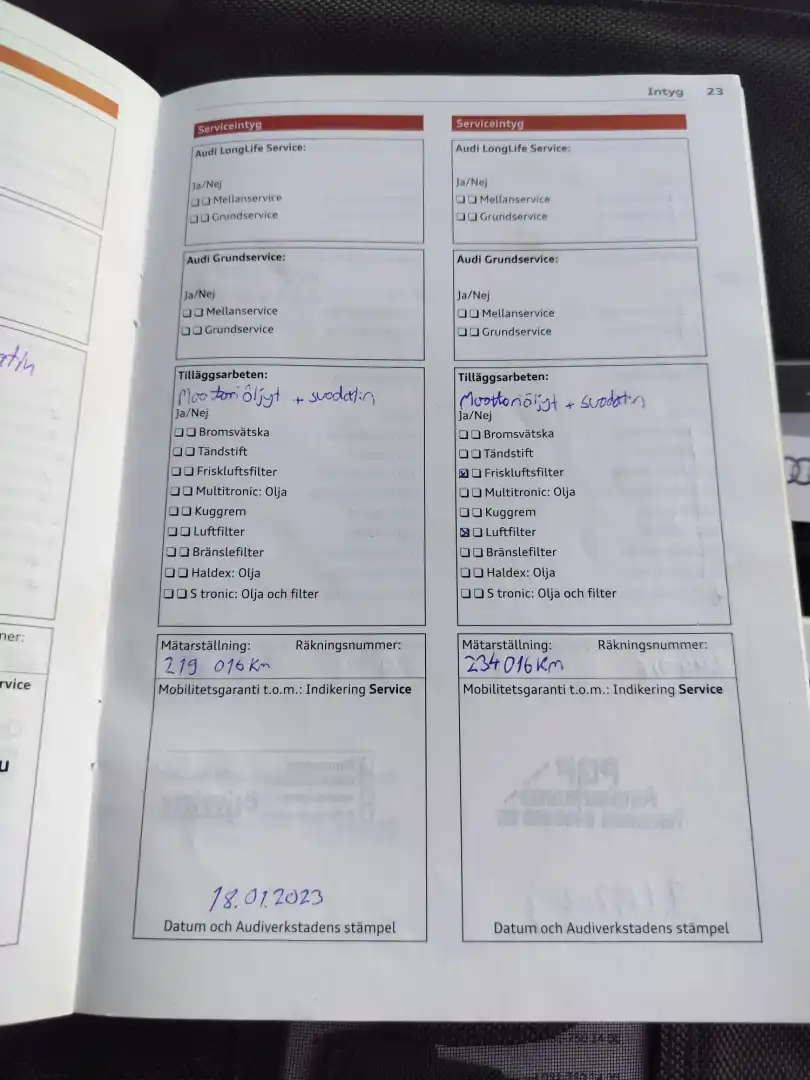 Intyg 23
Serviceintyg
Audi LongLife Service:
Ja/Nej
Mellanservice
Grundservice
Audi Grundservice:
Ja/Nej
Mellanservice
Grundservice
Tilläggsarbeten:
Moottoriöljyt + suodatin
Ja/Nej
Bromsvätska
Tändstift
Friskluftsfilter
Multitronic: Olja
Kuggrem
Luftfilter
Bränslefilter
Haldex: Olja
S tronic: Olja och filter
Mätarställning: Räkningsnummer:
219 016 Km
Mobilitetsgaranti t.o.m.: Indikering Service
18.01.2023
Datum och Audiverkstadens stämpel
Serviceintyg
Audi LongLife Service:
Ja/Nej
Mellanservice
Grundservice
Audi Grundservice:
Ja/Nej
Mellanservice
Grundservice
Tilläggsarbeten:
Moottoriöljyt + suodatin
Ja/Nej
Bromsvätska
Tändstift
Friskluftsfilter
Multitronic: Olja
Kuggrem
Luftfilter
Bränslefilter
Haldex: Olja
S tronic: Olja och filter
Mätarställning: Räkningsnummer:
234016 Km
Mobilitetsgaranti t.o.m.: Indikering Service
Datum och Audiverkstadens stämpel